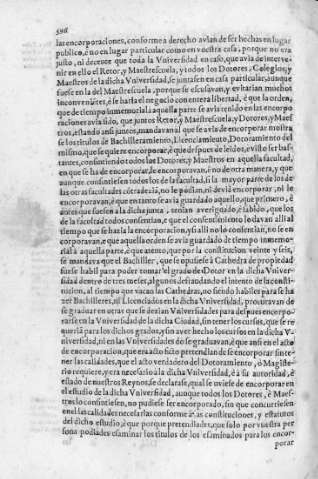 las encorporaciones, conforme a derecho avian de ser hechas en lugar
publico, è no en lugar particular como en vuestra casa, porque no era
justo, ni decente que toda la Vniversidad en caso, que avia de interve-
nir en ello el Retor, y Maestrescuela, y todos los Dotores, Colegios, y
Maestros de la dicha Vniversidad, se juntasen en casa particular, aunque
fuese en la del Maestrescuela, porque se escusavan, y evitarian muchos
inconvenientes, è se haria el negocio con entera libertad, è que la orden,
que de tiempo immemorial a la aquella parte se avia tenido en las encorpo-
raciones avia sido, que juntos Retor, y Maestrescuela, y Dotores, y Maes-
tros, estando ansi juntos, mandavan al que se avia de encorporar mostra
se los titulos de Bachilleramiento, Licenciamiento, Dotoramiento del
mismo, que se quiere encorporar, è que despues de leidos, e visto ser bas-
tantes, consintiendo todos los Dotores, y Maestros en aquella facultad,
en que se ha de encorporar, le encorporavan, è no de otra manera, y que
aunque consintiesen todos los de la facultad, si la mayor parte de los de
las otras facultades contradezia, no le podian, ni devia encorporar, ni le
encorporavan, è que en tanto se avia guardado aquello, que primero, è
antes que fuesen a la dicha junta, tenian averiguado, è sabido, que los
de la facultad todos consentian, è que este consentimiento le davan alli al
tiempo que se hazia la encorporacion, y si alli no lo consentian, no se en-
corporavan, è que aquella orden se avia guardado de tiempo immemo-
rial a aquella parte, è que atento, que por la constitucion veinte y seis,
se mandava que el Bachiller, que se opusiese à Cathedra de propiedad
fuese habil para poder tomar el grado de Dotor en la dicha Vniver-
sidad dentro de tres meses, algunos defraudando el intento de la consti-
tucion, al tiempo que vacan las Cathedras, no siendo habiles para se ha-
zer Bachilleres, ni Licenciados en la dicha Vniversidad, procuravan de
se graduar en otras que se dezian Vniversidades para despues encorpo-
rarse en la Vniversidad de la dicha Ciudad, sin tener los cursos, que se re
queria para los dichos grados, y sin aver hecho los cursos en la dicha V-
niversidad, ni en las Vniversidades do se graduavan, è que ansi en el acto
de encorporacion, que en acto fictio pretendian de se encorporar sin te-
ner las calidades, que el acto verdadero del Dotoramiento, ò Magiste-
rio requiere, y era necesario à la dicha Vniversidad, è à su autoridad, è
estado de nuestros Reynos, se declarase, qual se uviese de encorporar en
el estudio de la dicha Vniversidad, aunque todos los Dotores, è Maes-
tros lo consintiesen, no pudiese ser encorporado, sin que concurriesen
en el las calidades necesarias conforme à las constituciones, y estatutos
del dicho estudio, è que porque pretendiades, que solo por vuestra per
sona podiades esaminar los titulos de los esaminados para los encor-
porar